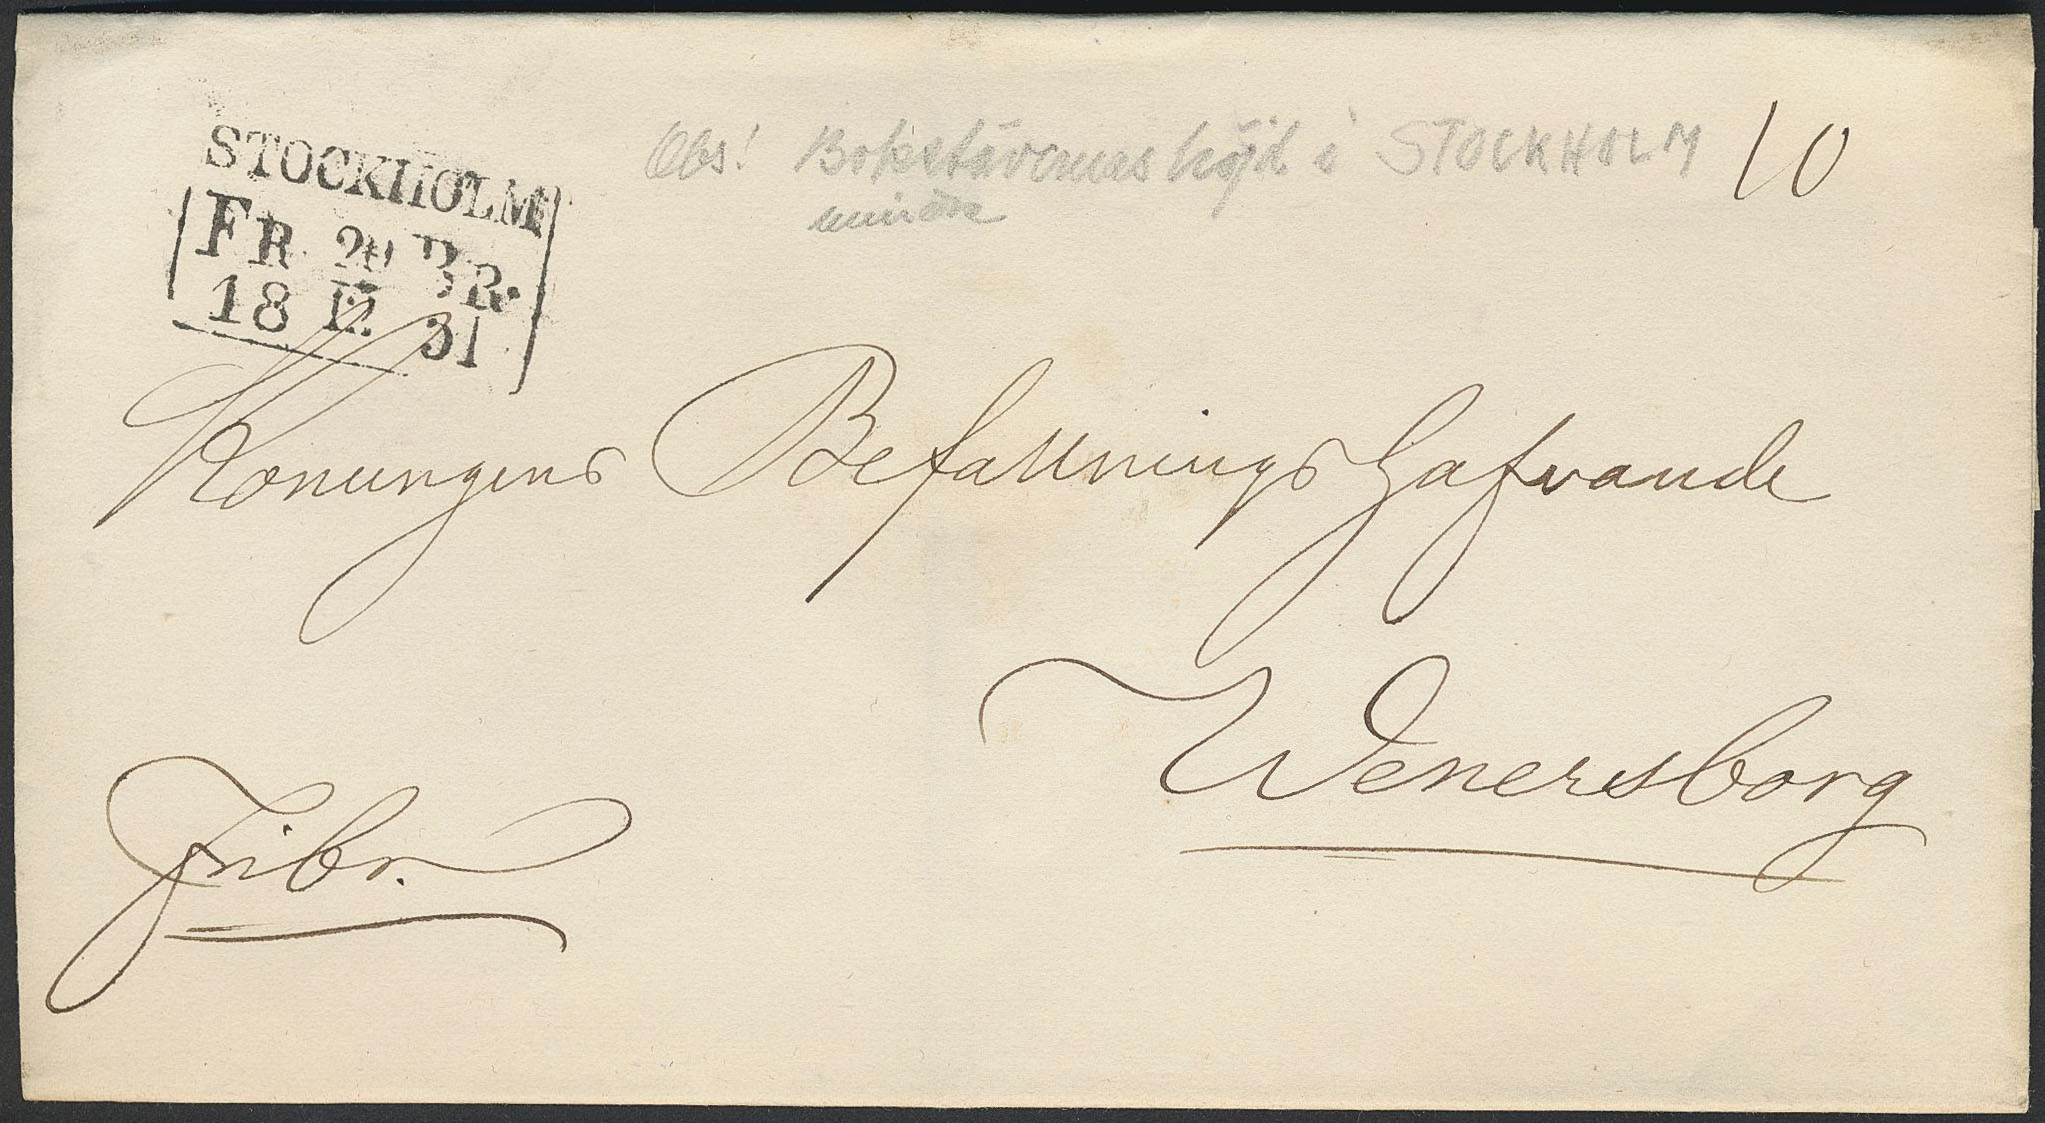 STOCKHOLM
FR. 20 BR.
18 12 51
Obs! Bokstävernas höjd i STOCKHOLM
mindre
10
Konungens Befallningshafvande
Wenersborg
Fribr.